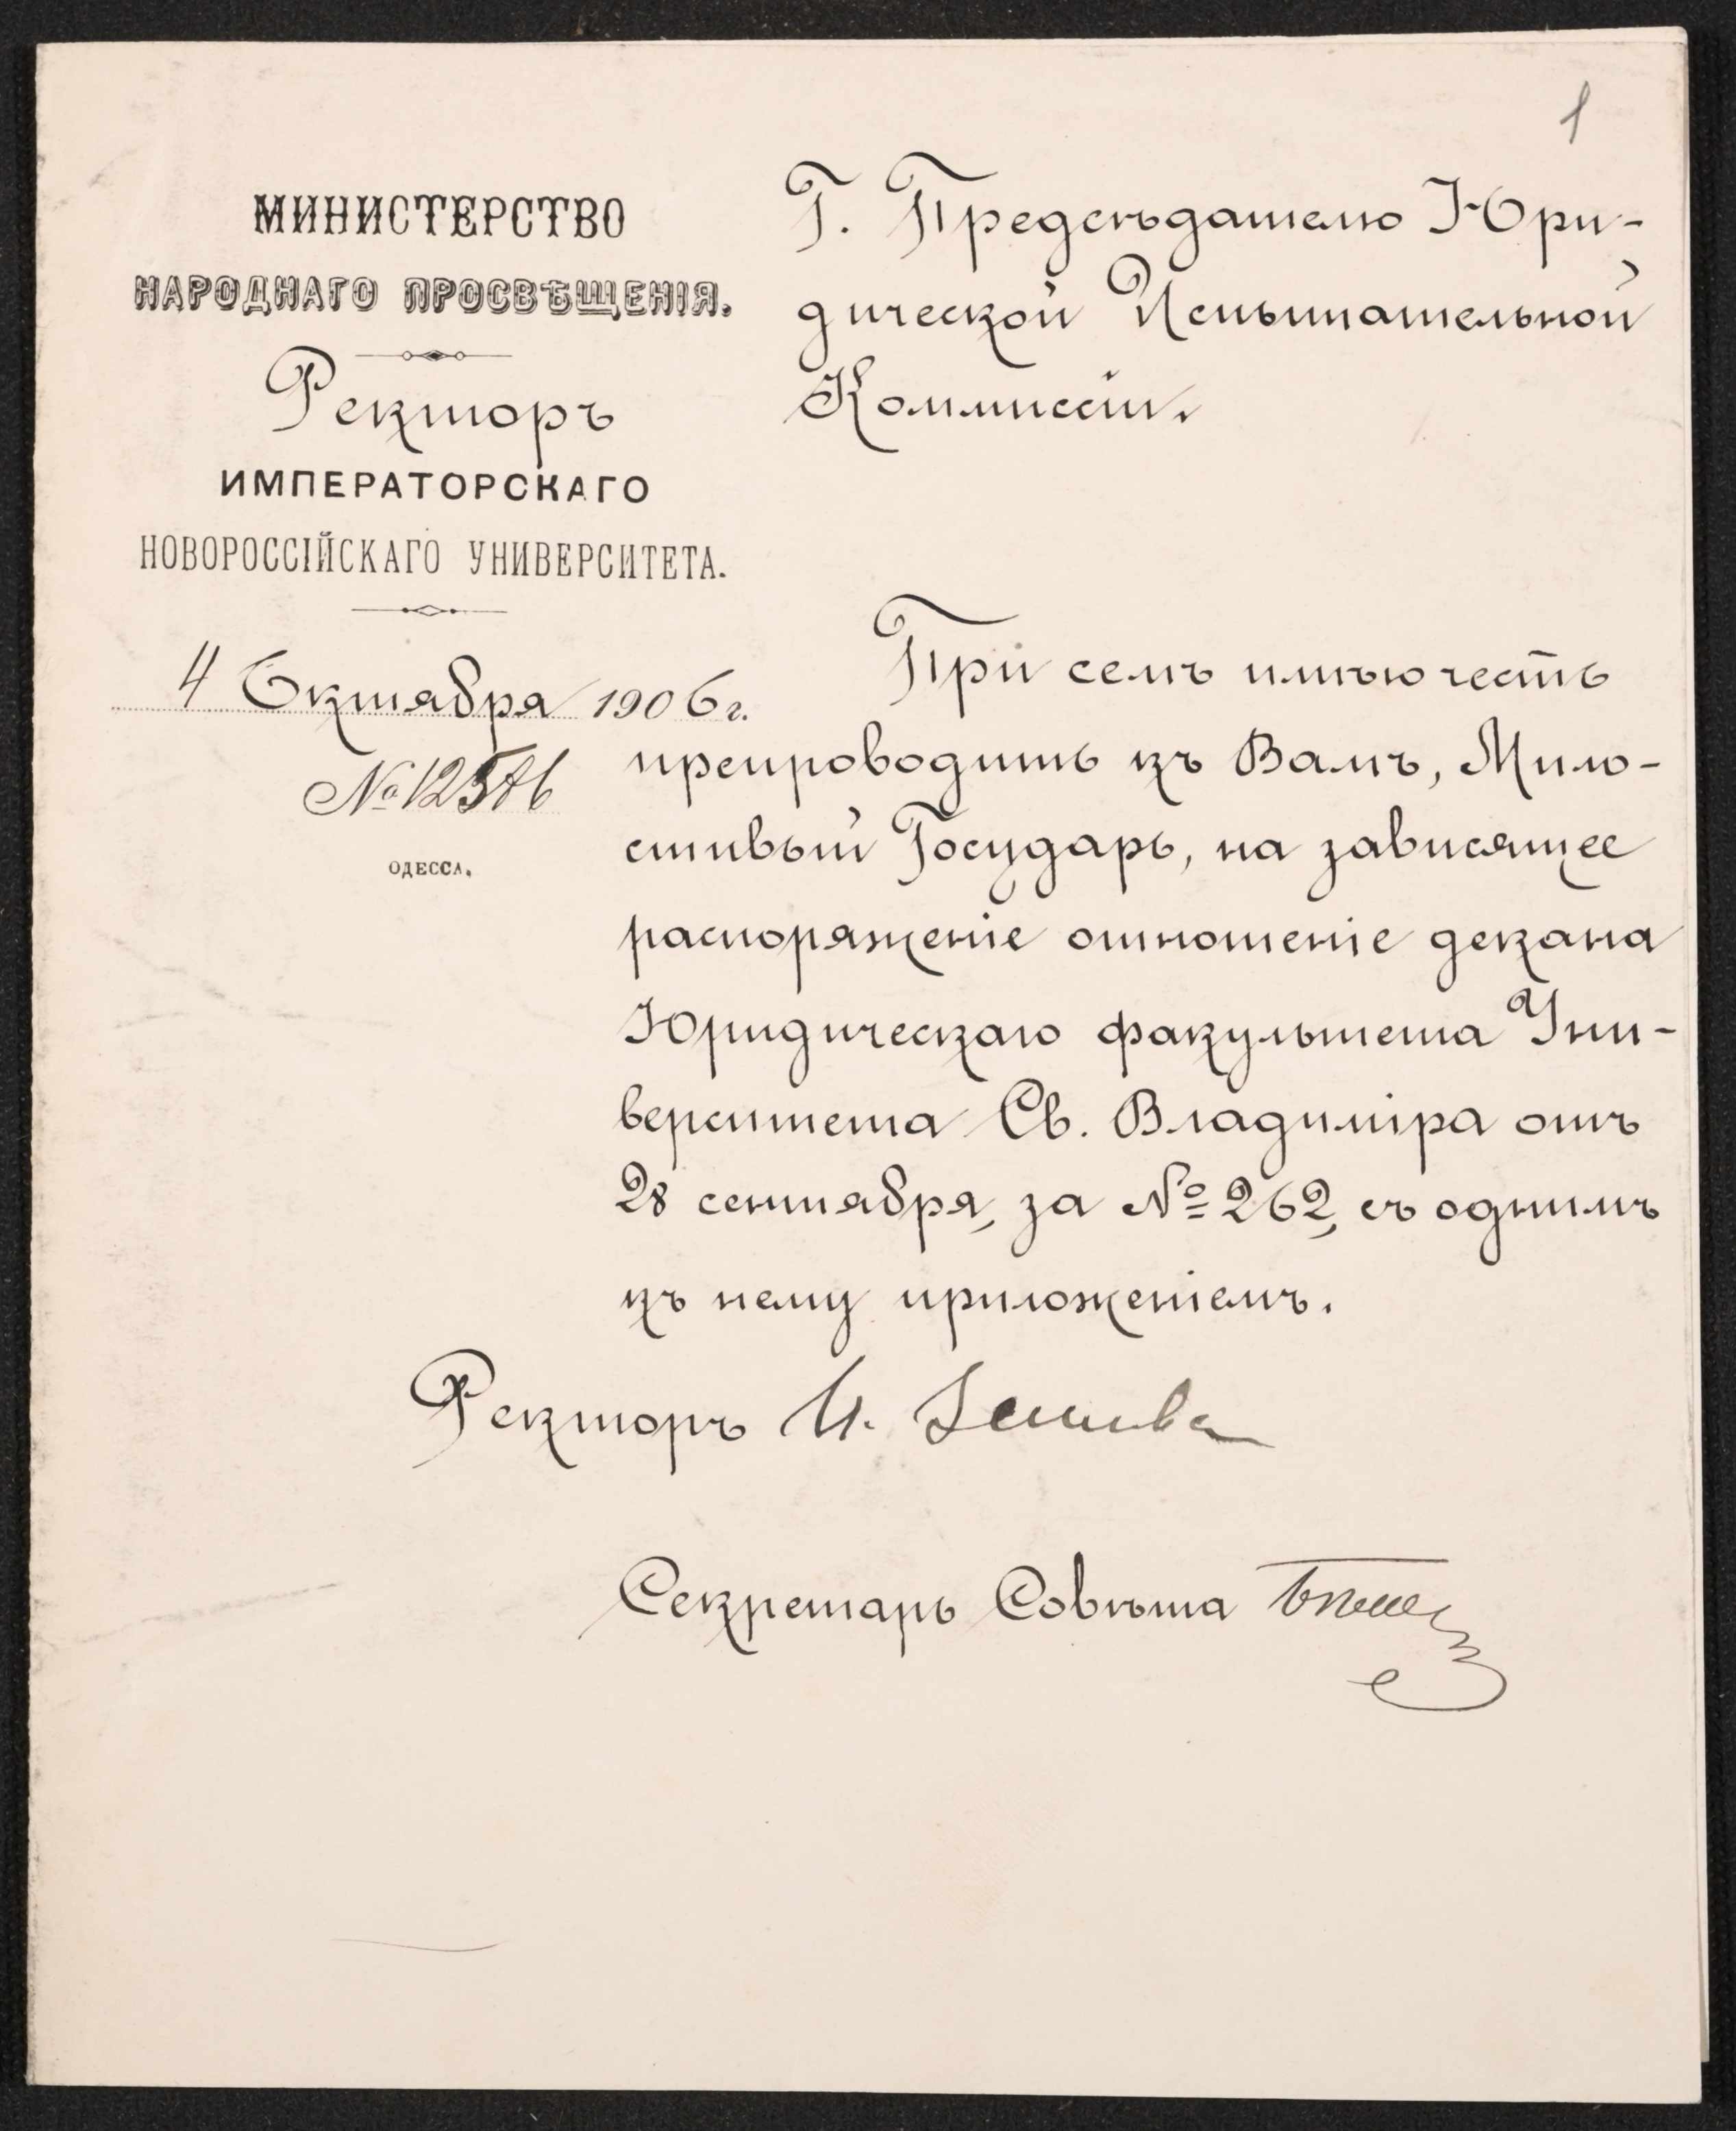 1
МИНИСТЕРСТВО
НАРОДНАГО ПРОСВѢЩЕНІЯ.
Ректоръ
ИМПЕРАТОРСКАГО
НОВОРОССІЙСКАГО УНИВЕРСИТЕТА.
4 Октября 1906 г.
№
ОДЕССА.
Г. Предсѣдателю Юри-
дической Испытательной
Коммиссіи.
При семъ имѣю честь
препроводить къ Вамъ, Мило-
стивый Государь, на зависящее
распоряженіе отношеніе декана
Юридическаго факультета Уни-
верситета Св. Владиміра отъ
28 сентября, за № 262, съ однимъ
къ нему приложеніемъ.
Ректоръ И.
Секретарь Совѣта